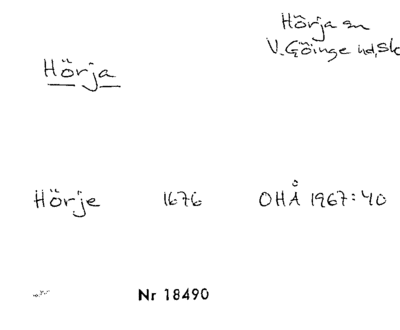 Hörja sn
V. Göinge hd, Sk
Hörja
Hörje 1676 OHÅ 1967:40
Nr 18490